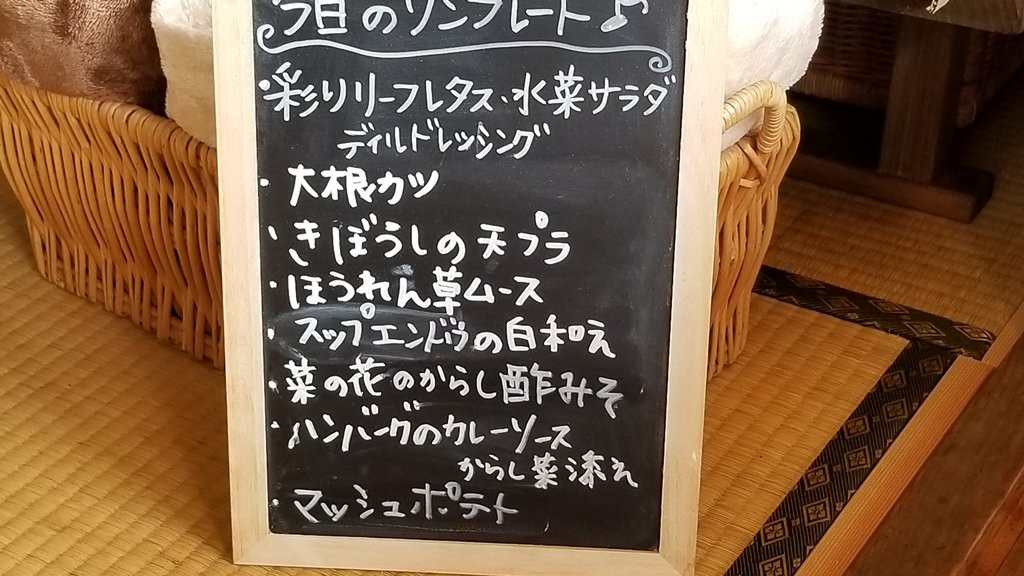 今日のワンプレート♪
・彩りリーフレタス・水菜サラダ
ディルドレッシング
・大根カツ
・きぼうしの天プラ
・ほうれん草ムース
・スップエンドゥの白和え
・菜の花のからし酢みそ
・ハンバーグのカレーソース
からし菜添え
・マッシュポテト